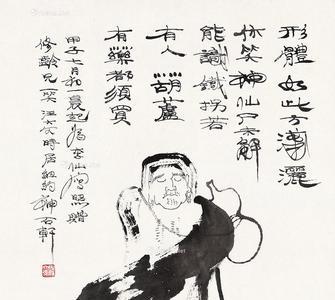 形體如此方瀟灑
休笑神仙尸解
能識鐵拐若
有人葫蘆
有藥都須買
甲子七月初晨起為李仙寫照贈
修齡兄一笑汪大文時居紐約禪石軒